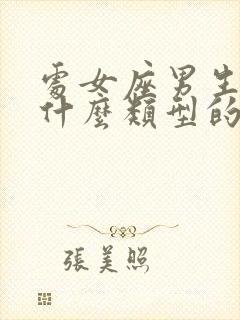 處女座男生
什麼類型的
張美照